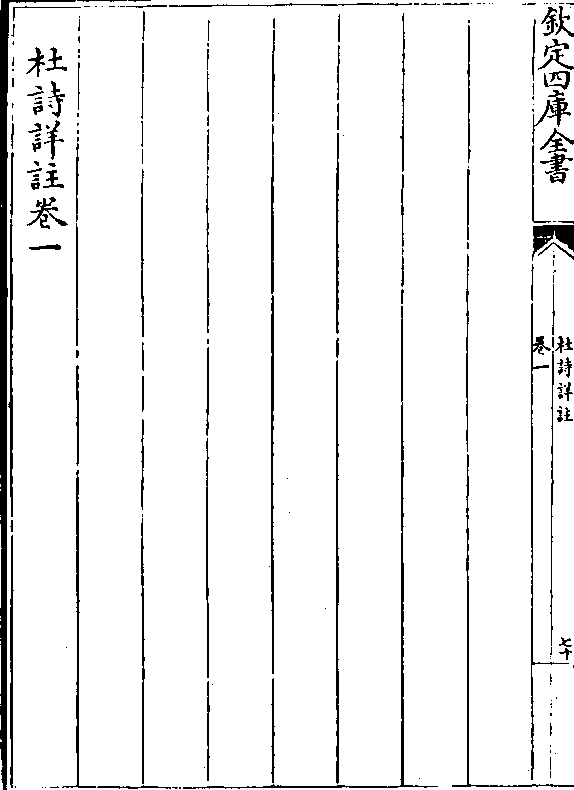 欽定四庫全書
杜詩詳註
卷一
七十
杜詩詳註卷一